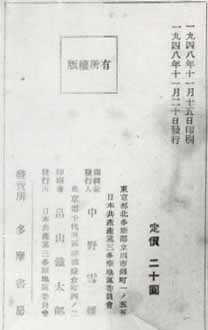 一九四八年十一月十五日印刷
一九四八年十一月二十日發行
有所權版
定價 二十圓
東京都北多摩郡立川市錦町一ノ五五
日本共產黨第三多摩地區委員會
編輯兼
發行人 中野雲
東京都千代田區
印刷者 畠山 太郎
發行人 日本共產黨第三多摩地區委員會
發賣所 多摩書房